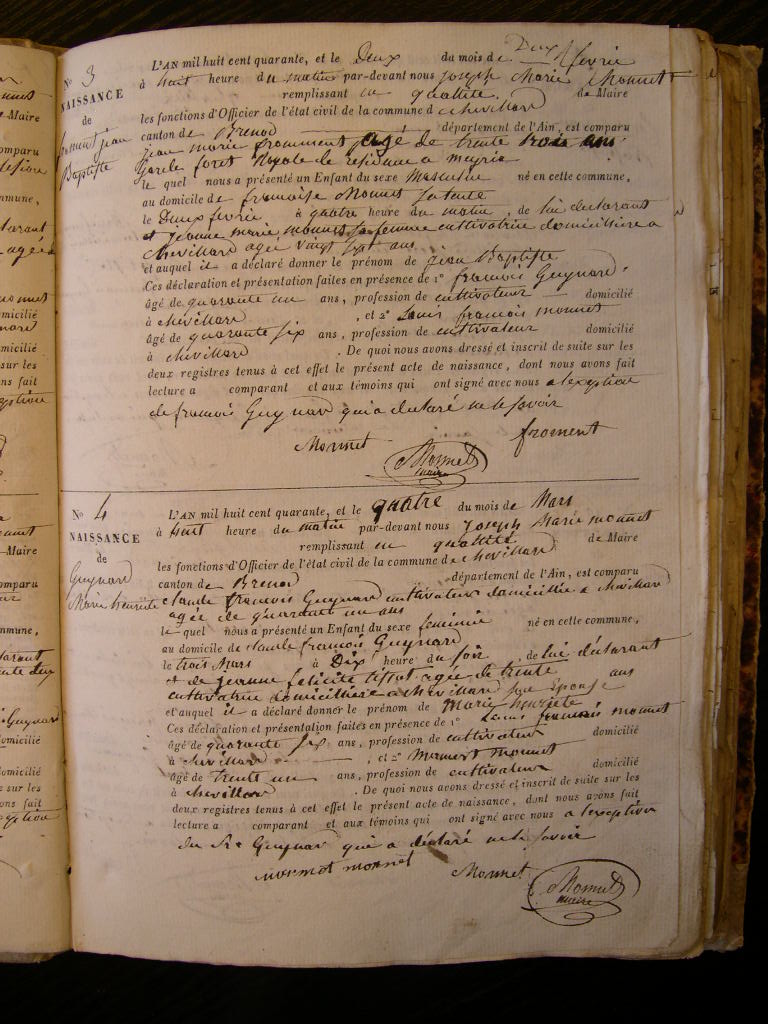 N° 3
NAISSANCE
de
froment jean
Baptiste
L'AN mil huit cent quarante, et le Deux du mois de fevrie
à huit heure du matin par-devant nous joseph Marie Monnet
remplissant en qualité de Maire
les fonctions d'Officier de l'état civil de la commune d chevillard
canton de Brenod département de l'Ain, est comparu
jean marie froment agé de trente trois ans
garde foret Royale de residence a meyria
le quel nous a présenté un Enfant du sexe masculin né en cette commune,
au domicile de francoise Monnet sa tante
le Deux fevrie à quatre heure du matin, de lui declarant
et jeanne marie monnet sa femme cultivatrice domicilliere a
chevillard agée vingt sept ans
et auquel il a déclaré donner le prénom de jean Baptiste
Ces déclaration et présentation faites en présence de 1° francois Guynard
âgé de quarante un ans, profession de cultivateur domicilié
à chevillard, et 2° Louis francois monnet
âgé de quarante six ans, profession de cultivateur domicilié
à chevillard. De quoi nous avons dressé et inscrit de suite sur les
deux registres tenus à cet effet le présent acte de naissance, dont nous avons fait
lecture a comparant et aux témoins qui ont signé avec nous a lexception
de francois Guynard qui a declaré ne le savoir
Monnet froment
Monnet
maire
N° 4
NAISSANCE
de
Guynard
Marie henriete
L'AN mil huit cent quarante, et le quatre du mois de Mars
à huit heure du matin par-devant nous joseph Marie monnet
remplissant en qualité de Maire
les fonctions d'Officier de l'état civil de la commune de chevillard
canton de Brenod département de l'Ain, est comparu
claude francois Guynard cultivateur domicillie a chevillard
agée de quarant un ans
le quel nous a présenté un Enfant du sexe feminin né en cette commune,
au domicile de claude francois Guynard
le trois Mars à Dix heure du soir, de lui declarant
et de jeanne felicite tissot agée de trente ans
cultivatrice domicilliere a chevillard son Epouse
et auquel il a déclaré donner le prénom de Marie henriete
Ces déclaration et présentation faites en présence de 1° Louis francois monnet
âgé de quarante six ans, profession de cultivateur domicilié
à chevillard, et 2° Mammert monnet
âgé de trente un ans, profession de cultivateur domicilié
à chevillard. De quoi nous avons dressé et inscrit de suite sur les
deux registres tenus à cet effet le présent acte de naissance, dont nous avons fait
lecture a comparant et aux témoins qui ont signé avec nous a lexception
du Sr Guynard qui a déclaré ne le savoir
monnet Monnet
Monnet
maire